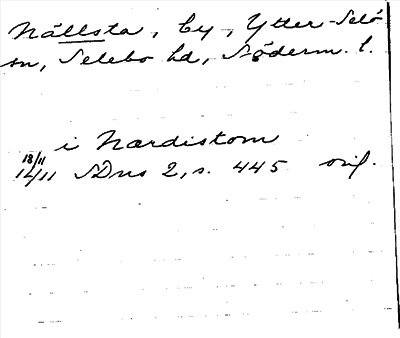 Nällsta, by, Ytter-Selö
sn, Selebo hd, Söderm. l.
i Nærdistom
18/11
14/11 SDns 2, s. 445 orig.